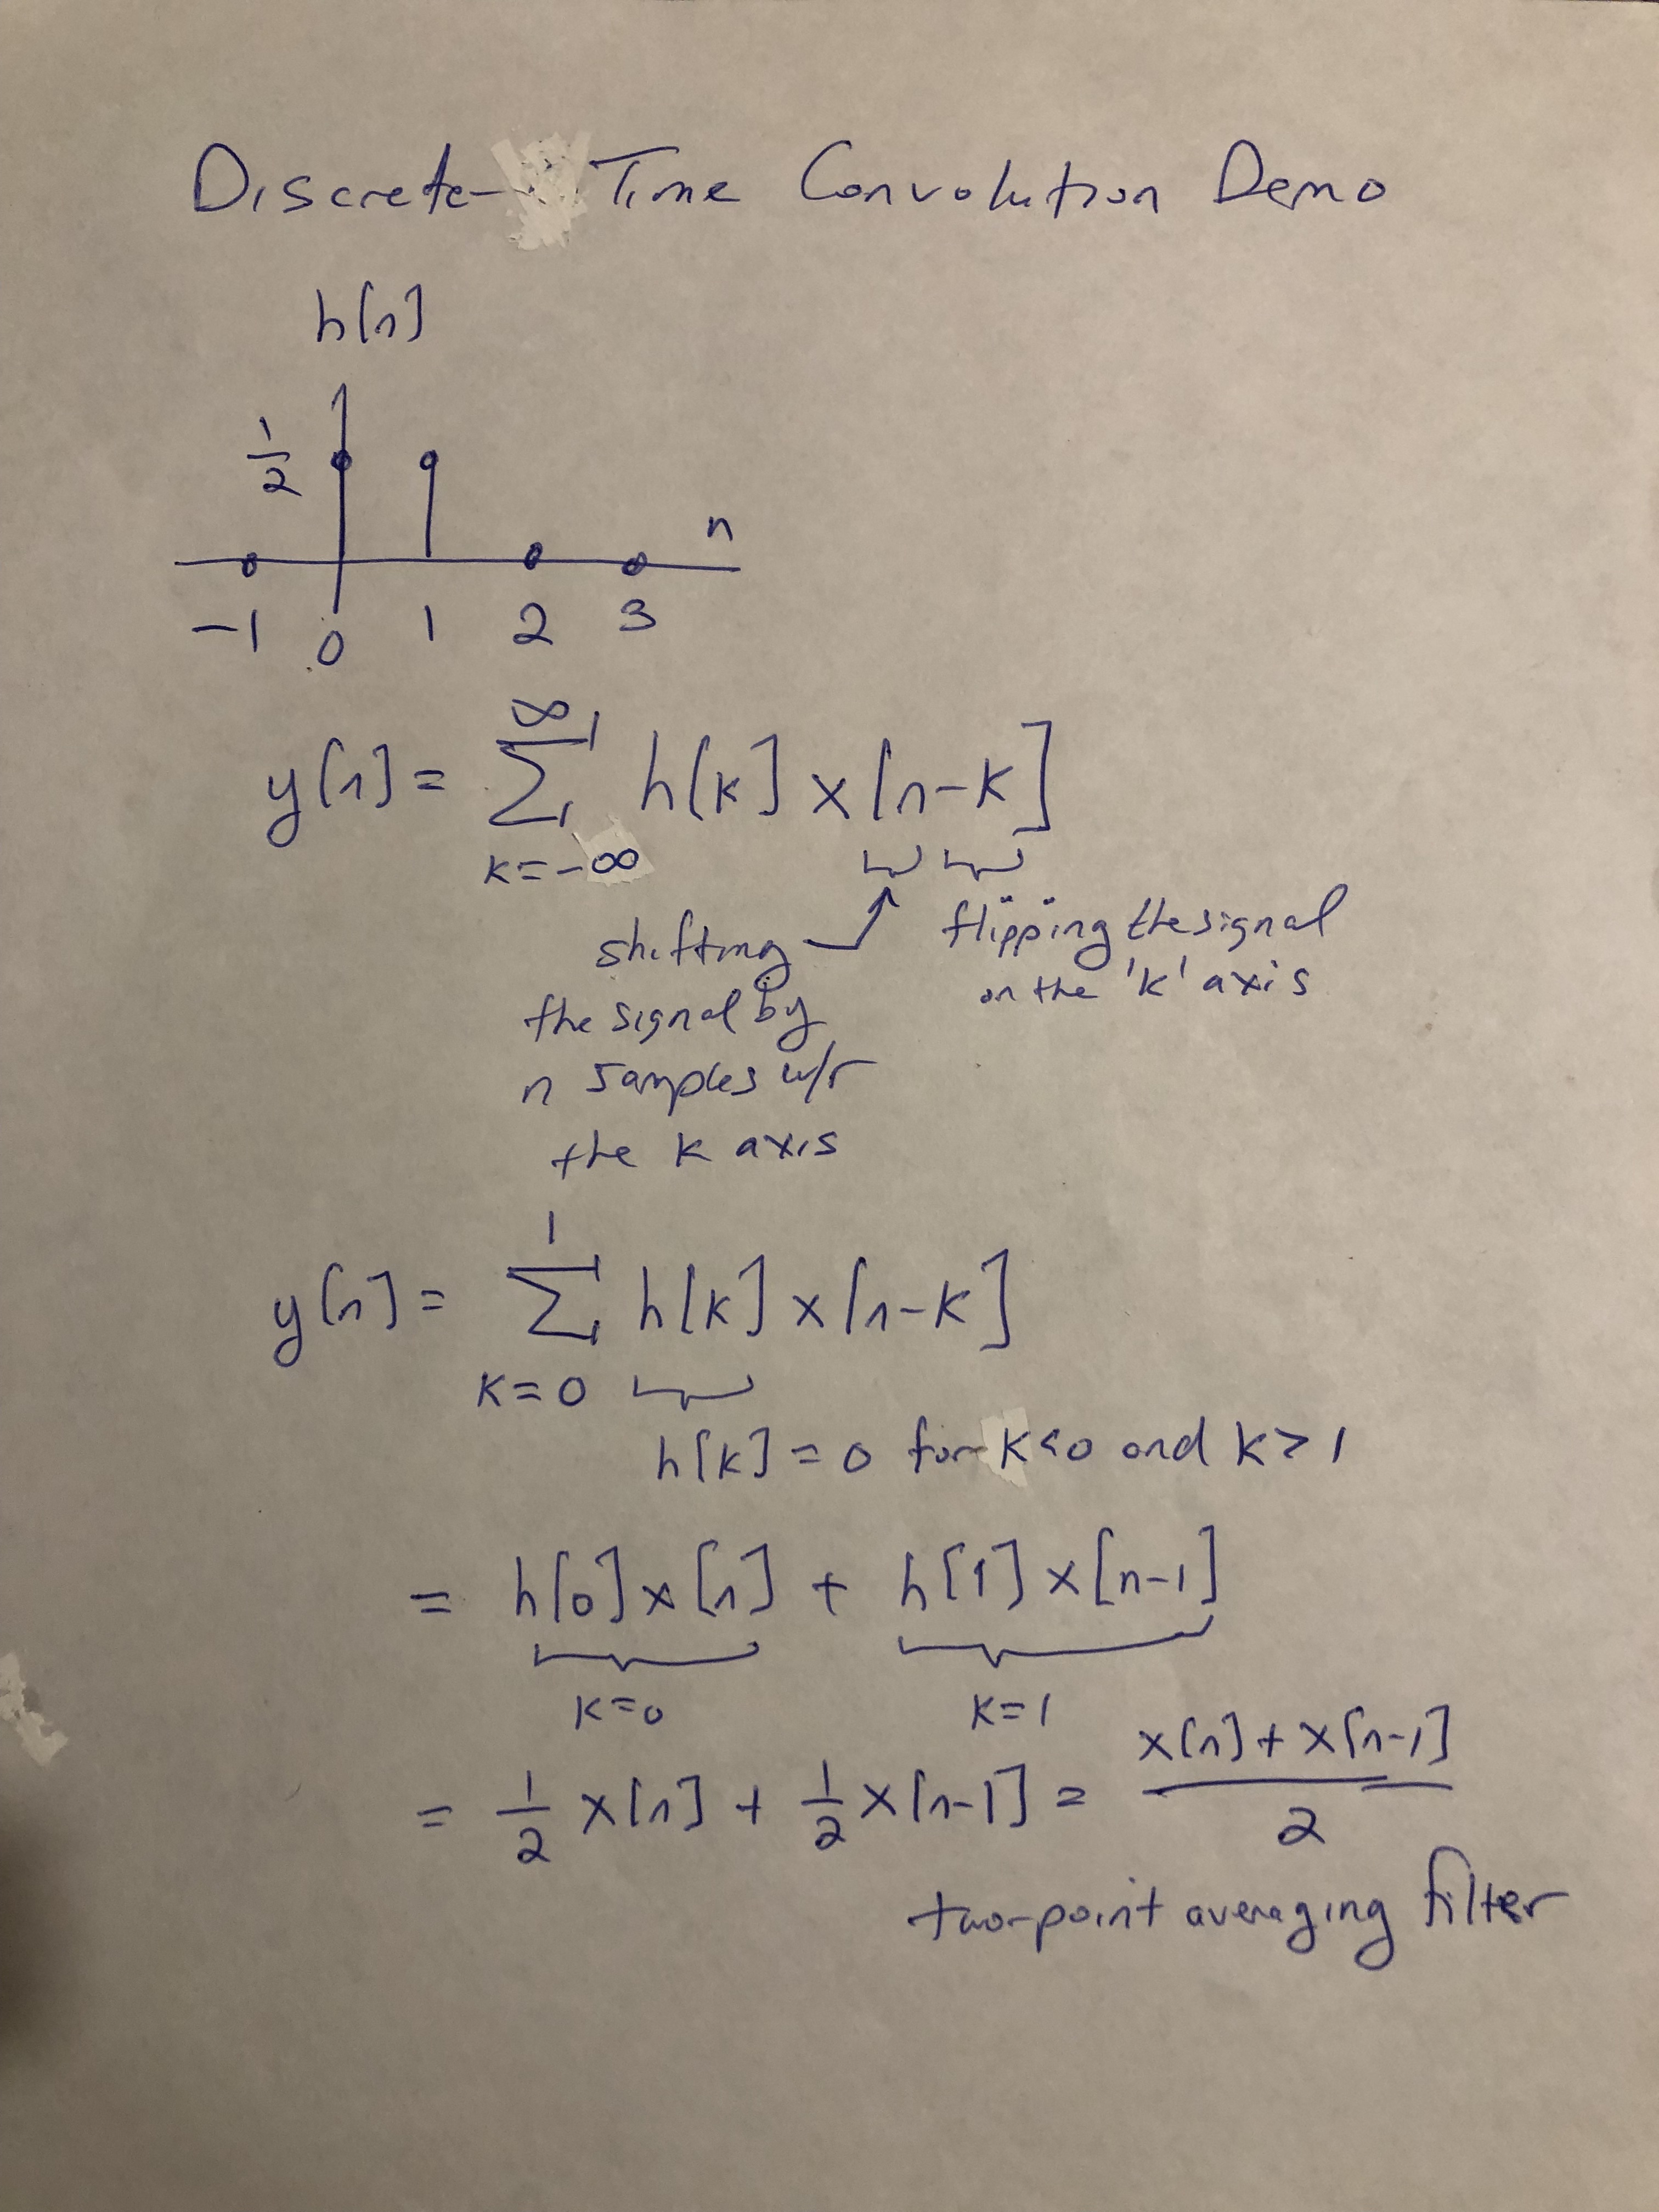 Discrete-Time Convolution Demo
h[n]
1/2
n
-1 0 1 2 3
y[n] = ∞ ∑ k=-∞ h[k] x[n-k]
shifting
the signal by
n samples w/r
the k axis
flipping the signal
on the 'k' axis
y[n] = 1 ∑ k=0 h[k] x[n-k]
h[k] = 0 for k<0 and k>1
= h[0] x[n] + h[1] x[n-1]
k=0 k=1
= 1/2 x[n] + 1/2 x[n-1] = (x[n] + x[n-1])/2
two-point averaging filter